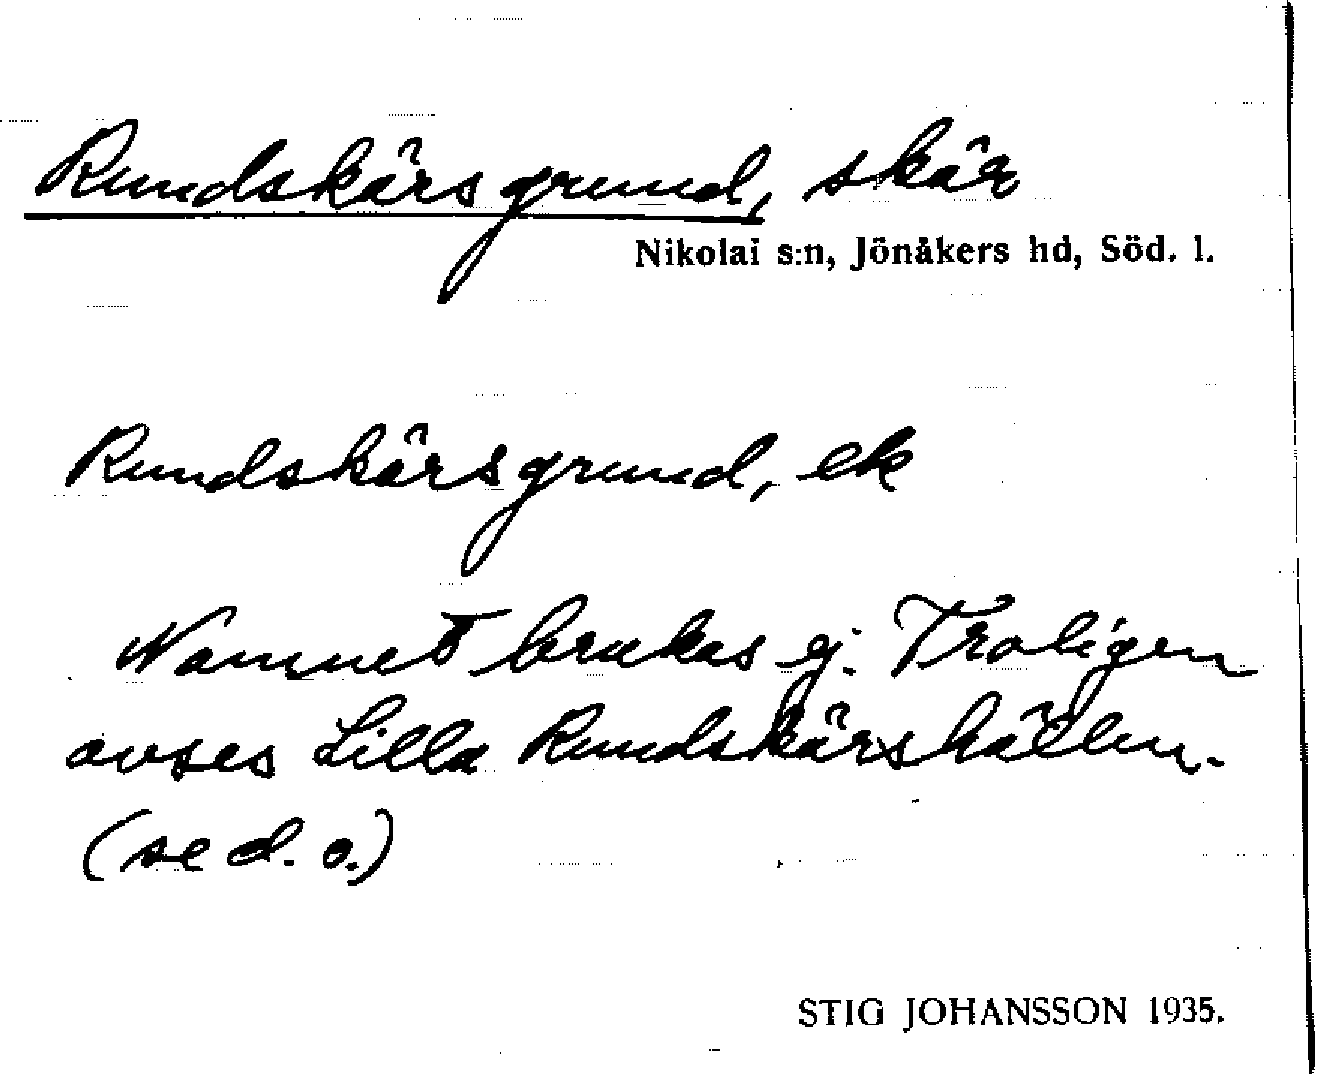 Rundskärsgrund, skär
Nikolai s:n, Jönåkers hd, Söd. l.
Rundskärsgrund, ek
Namnet brukas ej. Troligen
avses Lilla Rundskärshällen.
(se d. o.)
STIG JOHANSSON 1935.